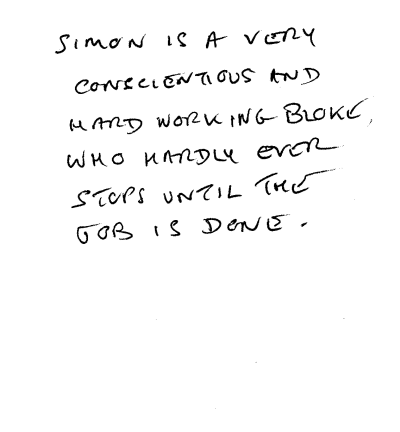 SIMON IS A VERY
CONSCIENTIOUS AND
HARD WORKING BLOKE,
WHO HARDLY EVER
STOPS UNTIL THE
JOB IS DONE.